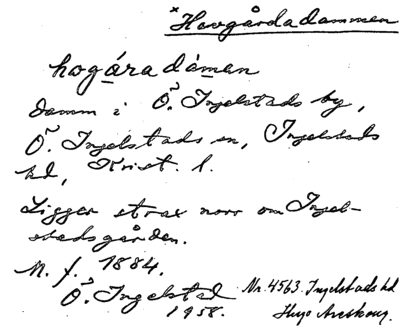 *Hovgårdadammen
hogáradàmen
Damm i Ö. Ingelstads by,
Ö. Ingelstads sn, Ingelstads
hd, Krist. l.
Ligger strax norr om Ingel-
stadsgården.
M. f. 1884.
Ö. Ingelstad Nr. 4563. Ingelstads hd
1958. Hugo Areskoug.